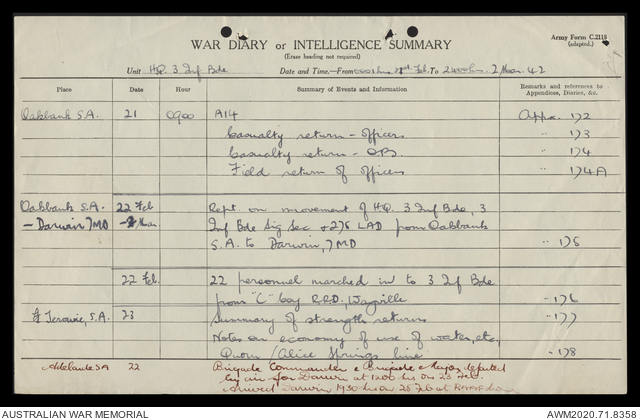 Army Form C.2118
(adapted.)
WAR DIARY or INTELLIGENCE SUMMARY
(Erase heading not required)
Unit HQ 3 Inf Bde Date and Time—From 0001 hrs Feb. To 2400 hrs. 2 Mar. 42
Place Date Hour Summary of Events and Information Remarks and references to Appendices, Diaries, &c.
Oakbank S.A. 21 0900 A14 Appx. 172
Casualty return - officers " 173
Casualty return - ORs. " 174
Field return of officers 174A
Oakbank S.A. 22 Feb Rept. on movement of HQ 3 Inf Bde, 3
— Darwin, 7MD - 2 Mar Inf Bde Sig Sec + 276 LAD from Oakbank
S.A. to Darwin, 7MD " 175
22 Feb. 22 personnel marched in to 3 Inf Bde
from "C" Coy R.R.D., Wayville " 176
Terowie, S.A. 23 Summary of strength returns " 177
Notes on economy of use of water, etc,
Quorn / Alice Springs line " 178
Adelaide SA 22 Brigade Commander & Brigade Major departed
by air for Darwin at 1200 hrs on 25 Feb
Arrived Darwin 1930 hrs on 25 Feb at
AUSTRALIAN WAR MEMORIAL AWM2020.71.8358